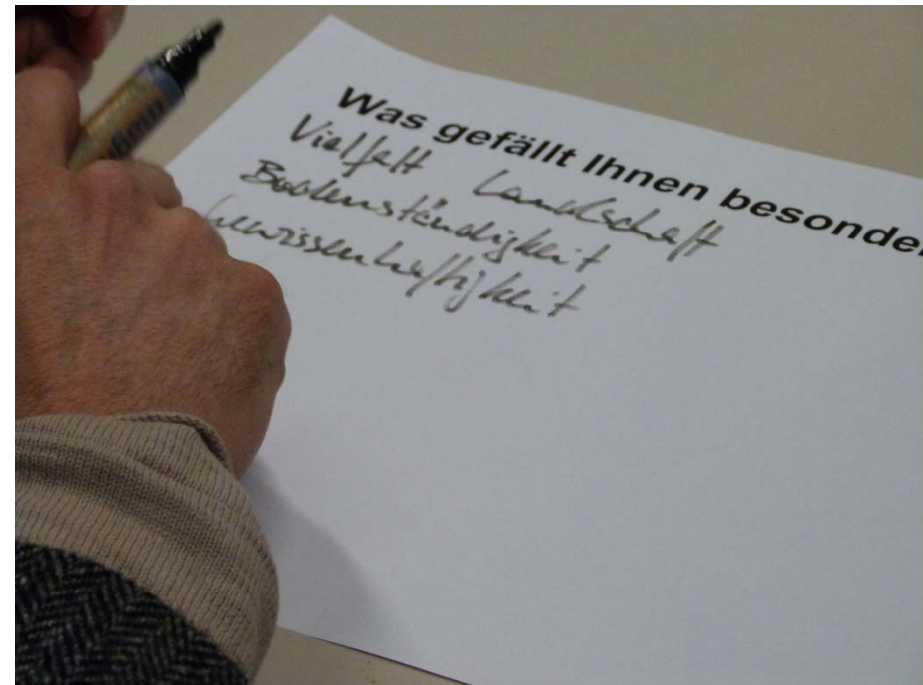 Was gefällt Ihnen besonder
Vielfalt Landschaft
Bodenständigkeit
Gewissenhaftigkeit